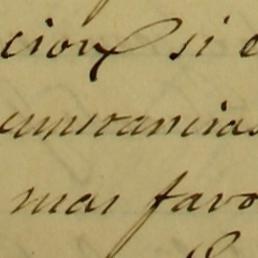 cion si e
cunstancias
mas favo